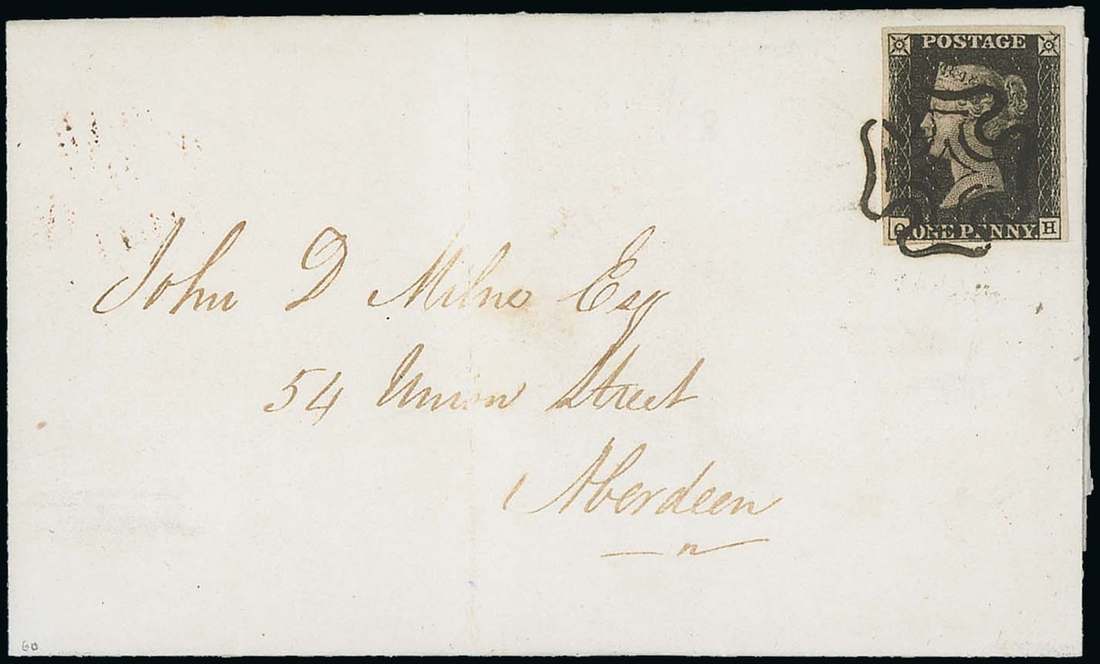 POSTAGE
ONE PENNY H
John D Milne Esq
54 Union Street
Aberdeen